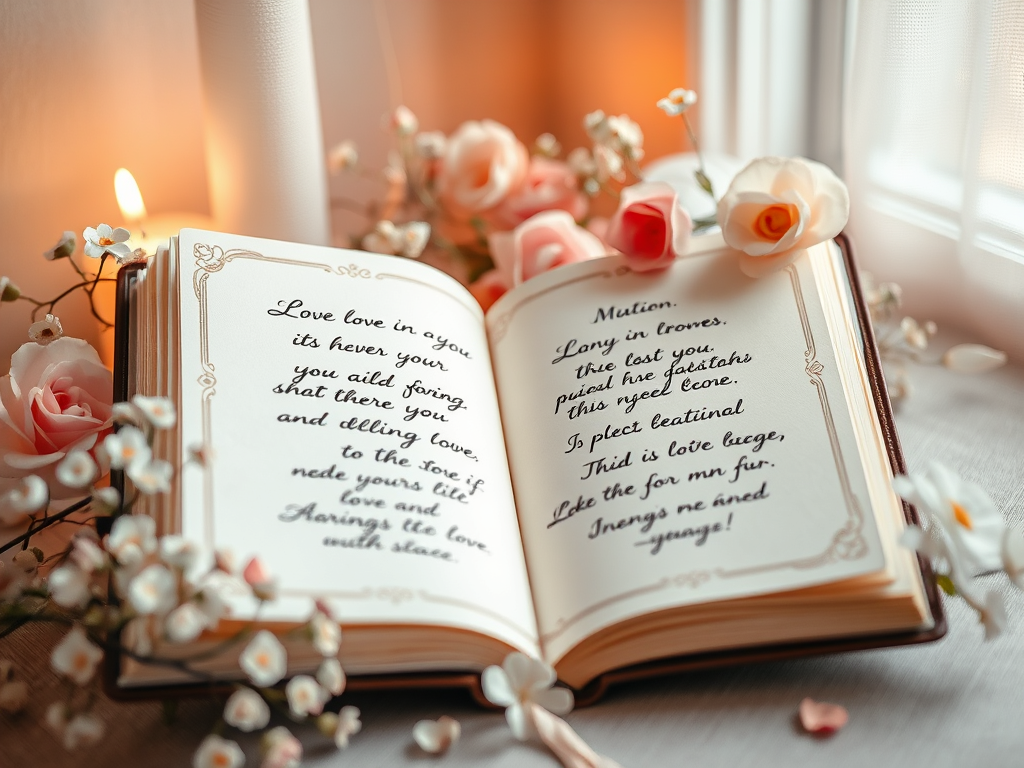 Love love in ayou
its hever your
you aild foring.
shat there you
and dlling lowe,
to the tore if
nede yours litc
love and
Aarings tte love,
with slace.
Mution.
Lany in lrowes.
thie lost you.
puical hre fastahi
this ngeel Ccone.
Is plect beatiinal
Thid is loive bucge,
Loke the for mn fur.
Inengs me áned
—yeuage!